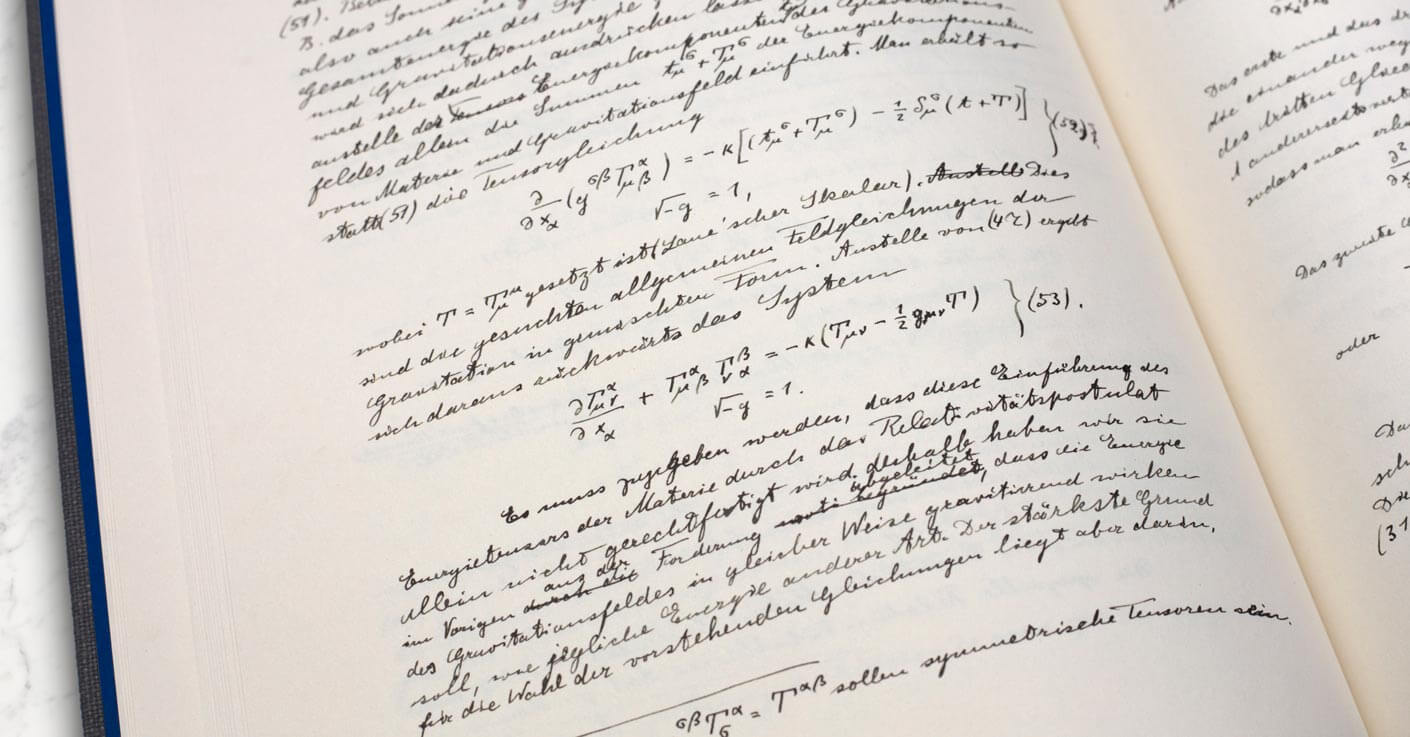 (51). 
B. das Sonne
also auch seine
Gesamtenergie des Sy
und Gravitationsenergie
wird sich dadurch ausdrücken lass
anstelle der Energiekomponenten des Gravitations-
feldes allein die Summen t_μ^σ + T_μ^σ der Energiekomponenten
von Materie und Gravitationsfeld einführt. Man erhält so
statt (51) die Tensorgleichung
∂/∂x_α (g^{σβ} Γ_{μβ}^α) = −κ[(t_μ^σ + T_μ^σ) − ½ δ_μ^σ (t + T)] } (52),
√−g = 1,
wobei T = T_μ^μ gesetzt ist (Laue'scher Skalar). Anstelle Dies
sind die gesuchten allgemeinen Feldgleichungen der
Gravitation in gemischten Form. Anstelle von (47) ergibt
sich daraus rückwärts das System
∂Γ_{μν}^α/∂x_α + Γ_{μβ}^α Γ_{να}^β = −κ(T_{μν} − ½ g_{μν} T) } (53).
√−g = 1.
Es muss zugegeben werden, dass diese Einführung des
Energietensors der Materie durch das Relativitätspostulat
allein nicht gerechtfertigt wird. deshalb haben wir sie
im Vorigen durch die aus der Forderung begründet, abgeleitet dass die Energie
des Gravitationsfeldes in gleicher Weise gravitierend wirken
soll, wie jegliche Energie anderer Art. Der stärkste Grund
für die Wahl der vorstehenden Gleichungen liegt aber darin,
σβ T_σ^α = T^{αβ} sollen symmetrische Tensoren sein.
Das erste und das dr
die einander weg
des dritten Glied
andererseits
sodass man erh
∂²
Das zweite
oder
Da
sch
(31